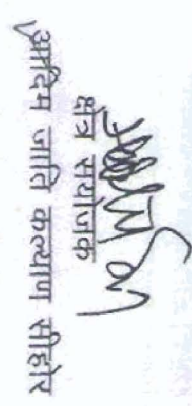 क्षेत्र संयोजक
आदिम जाति कल्याण सीहोर